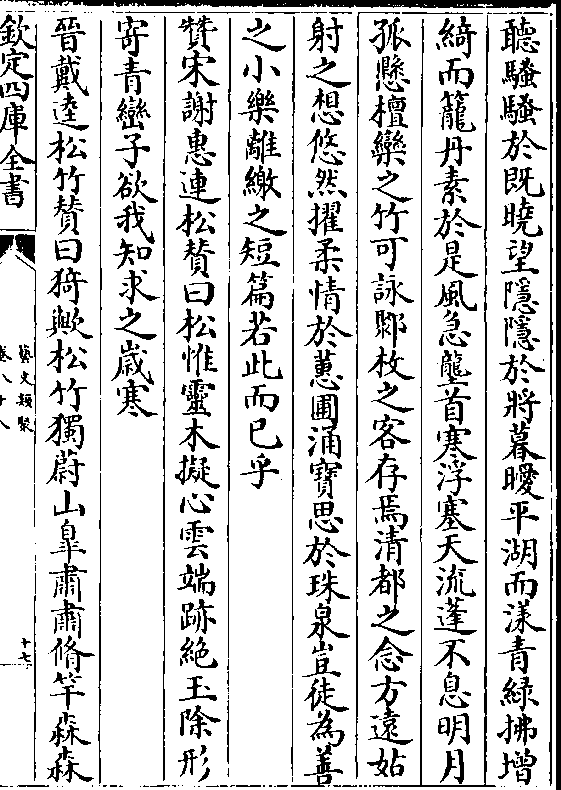 聽騷騷於既曉望隱隱於將暮曖平湖而漾青綠拂增
綺而籠丹素於是風急壟首寒浮塞天流蓬不息明月
孤懸檀欒之竹可詠鄒枚之客存焉清都之念方遠姑
射之想悠然擢柔情於蕙圃涌寶思於珠泉豈徒為善
之小樂離繳之短篇若此而已乎
贊宋謝惠連松贊曰松惟靈木擬心雲端跡絶玉除形
寄青巒子欲我知求之嵗寒
晉戴逵松竹贊曰猗歟松竹獨蔚山臯肅肅脩竿森森
欽定四庫全書
藝文類聚
卷八十八
十七